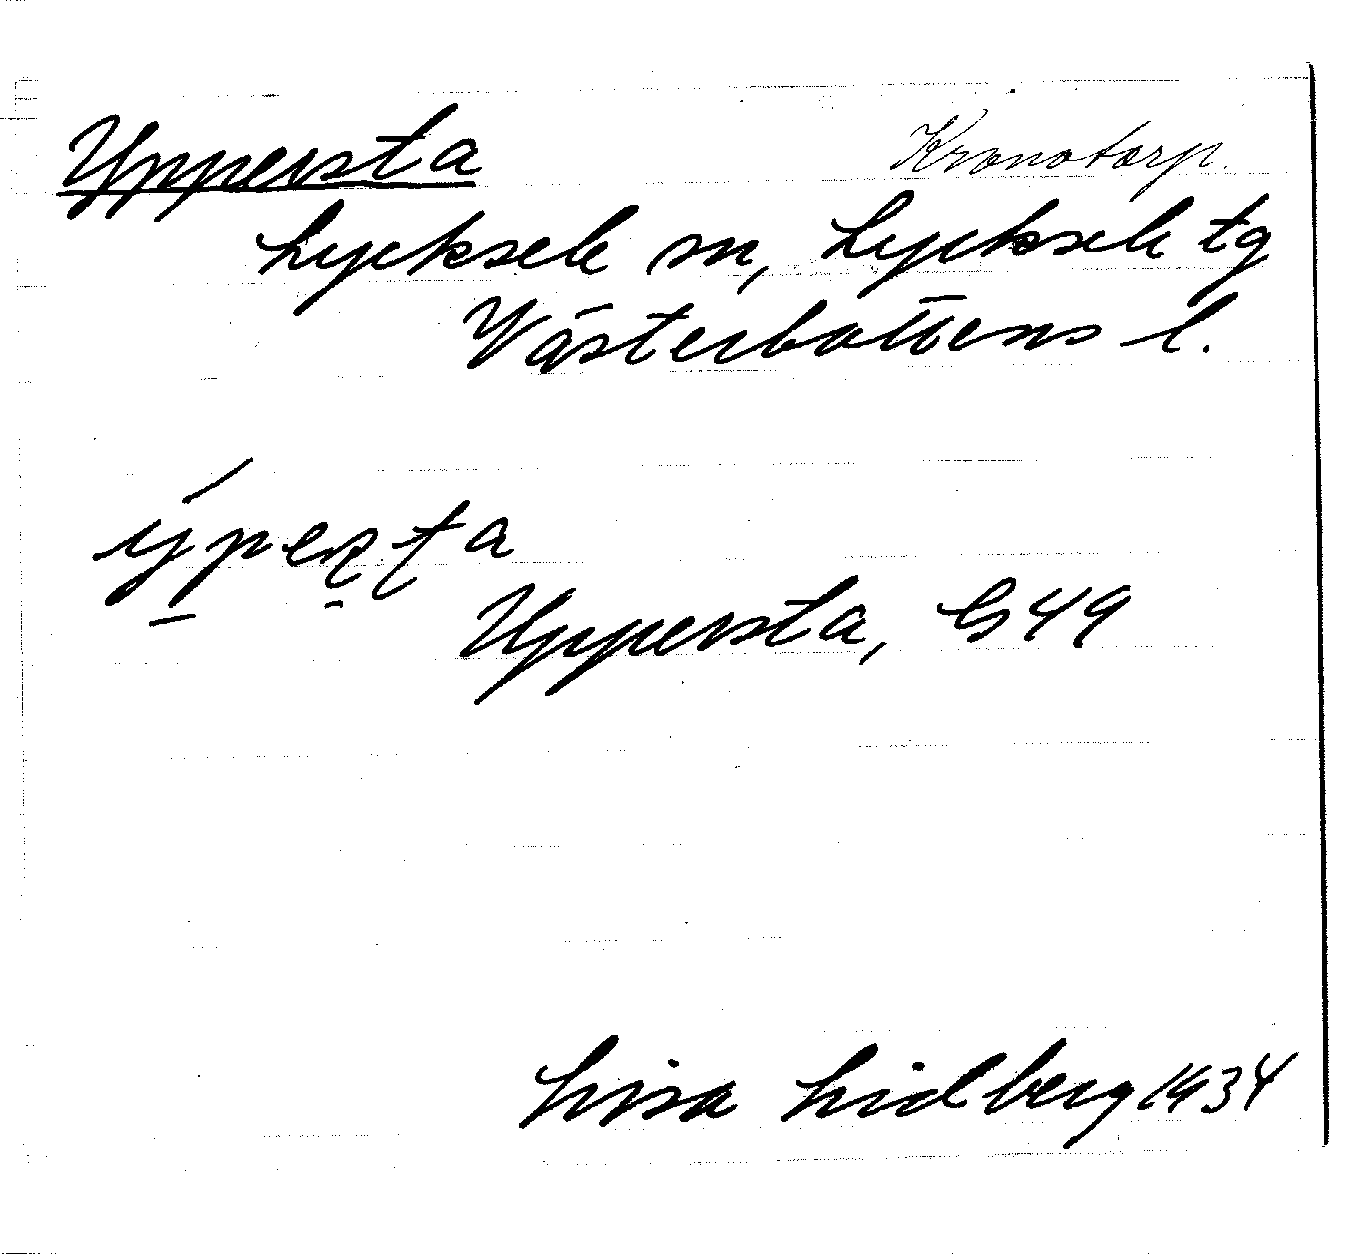 Yppersta Kronotorp.
Lycksele sn, Lycksele tg
Västerbottens l.
ýpeșța
Yppersta, G 49
Lisa Lidberg 1934